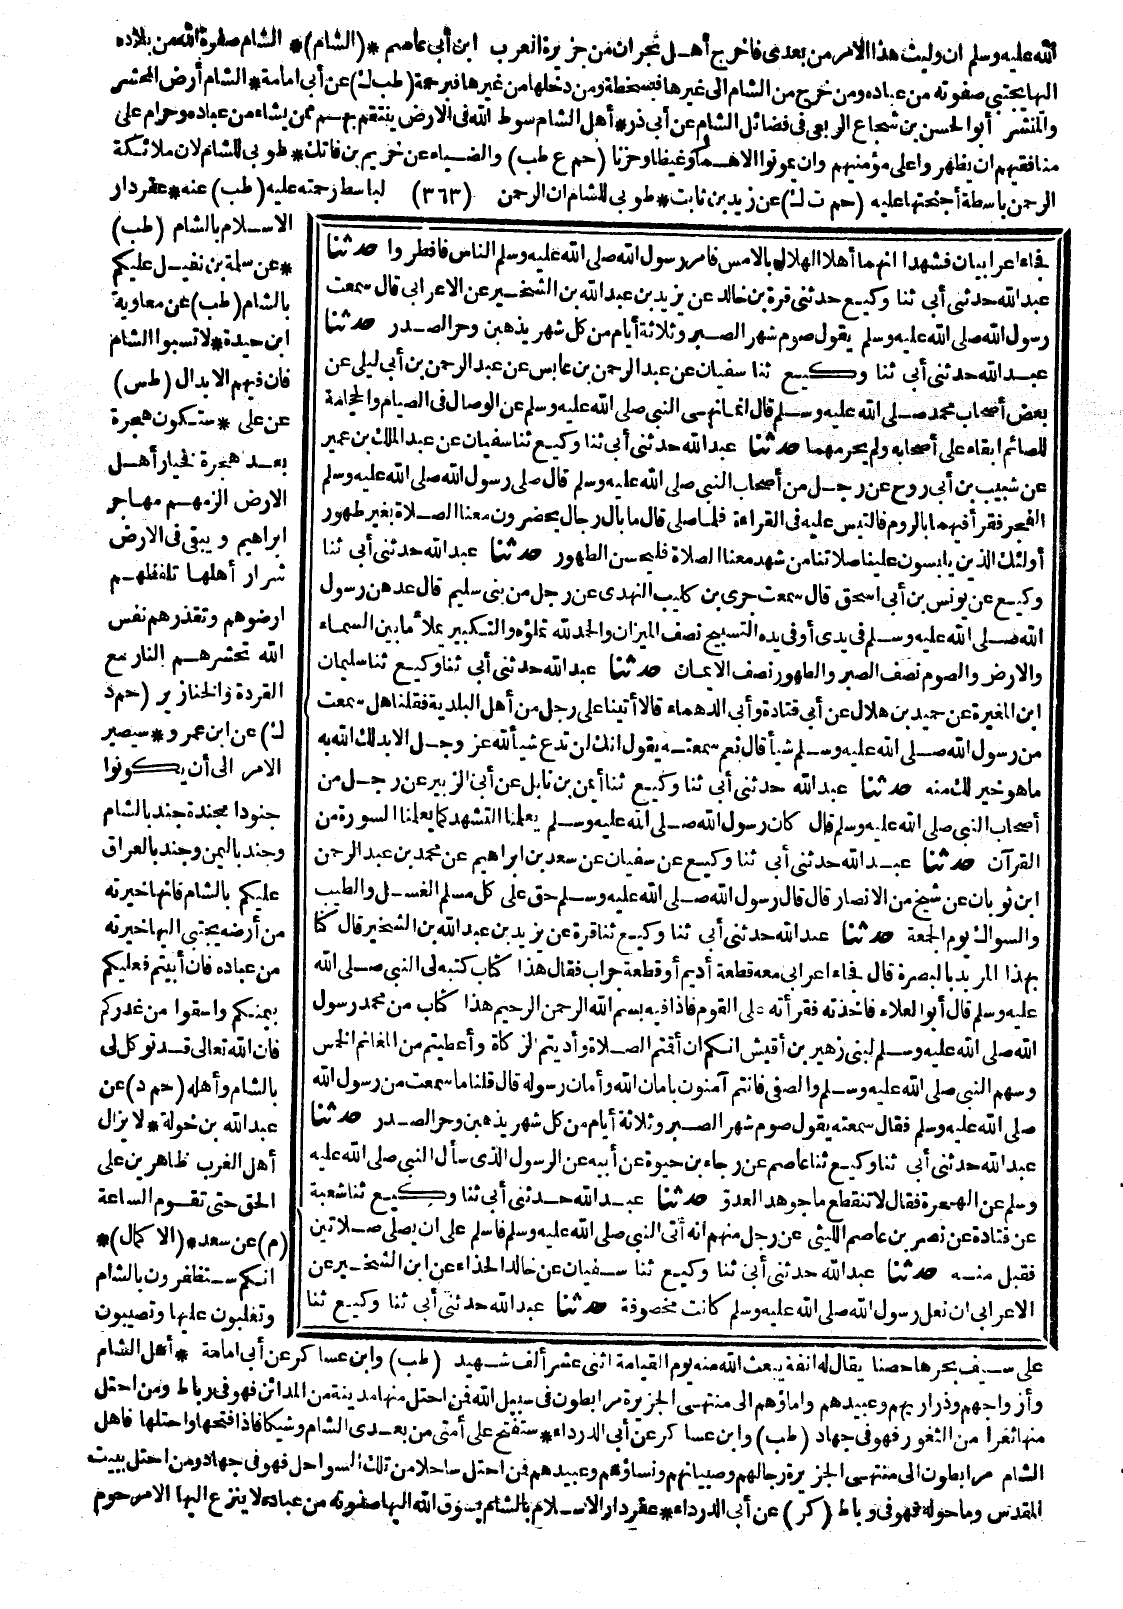 الله عليه وسلم ان وليت هذا الامر من بعدى فاخرج أهل نجران من جزيرة العرب ابن أبى عاصم * (الشام) * الشام صفوة الله من بلاده
اليها يجتبى صفوته من عباده ومن خرج من الشام الى غيرها فبسخطة ومن دخلها من غيرها فبرحمة (طب ك) عن أبى امامة * الشام أرض المحشر
والمنشر أبو الحسن بن شجاع الربعى فى فضائل الشام عن أبى ذر * أهل الشام سوط الله فى الارض ينتقم بهم ممن يشاء من عباده وحرام على
منافقيهم ان يظهروا على مؤمنيهم وان يموتوا الا هما وغيظا وحزنا (حم ع طب) والضياء عن خريم بن فاتك * طوبى للشام لان ملائكة
الرحمن باسطة أجنحتها عليه (حم ت ك) عن زيد بن ثابت * طوبى للشام ان الرحمن (٣٦٣) لباسط رحمته عليه (طب) عنه * عقر دار
الاسلام بالشام (طب)
* عن سلمة بن نفيل عليكم
بالشام (طب) عن معاوية
ابن حيدة * لا تسبوا الشام
فان فيهم الابدال (طس)
عن على * ستكون هجرة
بعد هجرة لخيار أهل
الارض الزمهم مهاجر
ابراهيم ويبقى فى الارض
شرار أهلها تلفظهم
ارضوهم وتقذرهم نفس
الله تحشرهم النار مع
القردة والخنازير (حم د
ك) عن ابن عمرو * سيصير
الامر الى أن يكونوا
جنودا مجندة جند بالشام
وجند باليمن وجند بالعراق
عليكم بالشام فانها خيرته
من أرضه يجتبى اليها خيرته
من عباده فان أبيتم فعليكم
بيمنكم واسقوا من غدركم
فان الله تعالى قد توكل لى
بالشام وأهله (حم د) عن
عبد الله بن خولة * لا يزال
أهل الغرب ظاهرين على
الحق حتى تقوم الساعة
(م) عن سعد * (الاكمال) *
انكم ستظفرون بالشام
وتغلبون عليها وتصيبون
فجاء اعرابيان فشهدا انهما أهلا الهلال بالامس فامر رسول الله صلى الله عليه وسلم الناس فافطروا حدثنا
عبد الله حدثنى أبى ثنا وكيع حدثنى قرة بن خالد عن يزيد بن عبد الله بن الشخير عن الاعرابى قال سمعت
رسول الله صلى الله عليه وسلم يقول صوم شهر الصبر وثلاثة أيام من كل شهر يذهبن وحر الصدر حدثنا
عبد الله حدثنى أبى ثنا وكيع ثنا سفيان عن عبد الرحمن بن عابس عن عبد الرحمن بن أبى ليلى عن
بعض أصحاب محمد صلى الله عليه وسلم قال انما نهى النبى صلى الله عليه وسلم عن الوصال فى الصيام والحجامة
للصائم ابقاء على أصحابه ولم يحرمهما حدثنا عبد الله حدثنى أبى ثنا وكيع ثنا سفيان عن عبد الملك بن عمير
عن شبيب بن أبى روح عن رجل من أصحاب النبى صلى الله عليه وسلم قال صلى رسول الله صلى الله عليه وسلم
الفجر فقرأ فيهما بالروم فالتبس عليه فى القراءة فلما صلى قال ما بال رجال يحضرون معنا الصلاة بغير طهور
أولئك الذين يلبسون علينا صلاتنا من شهد معنا الصلاة فليحسن الطهور حدثنا عبد الله حدثنى أبى ثنا
وكيع عن يونس بن أبى اسحق قال سمعت جرى بن كليب النهدى عن رجل من بنى سليم قال عدهن رسول
الله صلى الله عليه وسلم فى يدى أو فى يده التسبيح نصف الميزان والحمد لله تملؤه والتكبير يملأ ما بين السماء
والارض والصوم نصف الصبر والطهور نصف الايمان حدثنا عبد الله حدثنى أبى ثنا وكيع ثنا سليمان
ابن المغيرة عن حميد بن هلال عن أبى قتادة وأبى الدهماء قالا أتينا على رجل من أهل البادية فقلنا هل سمعت
من رسول الله صلى الله عليه وسلم شيأ قال نعم سمعته يقول انك لن تدع شيأ لله عز وجل الا بدلك الله به
ما هو خير لك منه حدثنا عبد الله حدثنى أبى ثنا وكيع ثنا أيمن بن نابل عن أبى الزبير عن رجل من
أصحاب النبى صلى الله عليه وسلم قال كان رسول الله صلى الله عليه وسلم يعلمنا التشهد كما يعلمنا السورة من
القرآن حدثنا عبد الله حدثنى أبى ثنا وكيع عن سفيان عن سعد بن ابراهيم عن محمد بن عبد الرحمن
ابن ثوبان عن شيخ من الانصار قال قال رسول الله صلى الله عليه وسلم حق على كل مسلم الغسل والطيب
والسواك يوم الجمعة حدثنا عبد الله حدثنى أبى ثنا وكيع ثنا قرة عن يزيد بن عبد الله بن الشخير قال كنا
بهذا المربد بالبصرة قال فجاء اعرابى معه قطعة أديم أو قطعة جراب فقال هذا كتاب كتبه لى النبى صلى الله
عليه وسلم قال أبو العلاء فاخذته فقرأته على القوم فاذا فيه بسم الله الرحمن الرحيم هذا كتاب من محمد رسول
الله صلى الله عليه وسلم لبنى زهير بن أقيش انكم ان أقمتم الصلاة وأديتم الزكاة وأعطيتم من المغانم الخمس
وسهم النبى صلى الله عليه وسلم والصفى فانتم آمنون بامان الله وأمان رسوله قال قلنا ما سمعت من رسول الله
صلى الله عليه وسلم فقال سمعته يقول صوم شهر الصبر وثلاثة أيام من كل شهر يذهبن وحر الصدر حدثنا
عبد الله حدثنى أبى ثنا وكيع ثنا عاصم عن رجاء بن حيوة عن أبيه عن الرسول الذى سأل النبى صلى الله عليه
وسلم عن الهجرة فقال لا تنقطع ما جوهد العدو حدثنا عبد الله حدثنى أبى ثنا وكيع ثنا شعبة
عن قتادة عن نصر بن عاصم الليثى عن رجل منهم انه أتى النبى صلى الله عليه وسلم فاسلم على ان يصلى صلاتين
فقبل منه حدثنا عبد الله حدثنى أبى ثنا وكيع ثنا سفيان عن خالد الحذاء عن ابن الشخير عن
الاعرابى ان نعل رسول الله صلى الله عليه وسلم كانت مخصوفة حدثنا عبد الله حدثنى أبى ثنا وكيع ثنا
على سيف بحرها حصنا يقال له انفة يبعث الله منه يوم القيامة اثنى عشر ألف شهيد (طب) وابن عساكر عن أبى امامة * أهل الشام
وأزواجهم وذراريهم وعبيدهم واماؤهم الى منتهى الجزيرة مرابطون فى سبيل الله فمن احتل منها مدينة من المدائن فهو فى رباط ومن احتل
منها ثغرا من الثغور فهو فى جهاد (طب) وابن عساكر عن أبى الدرداء * ستفتح على أمتى من بعدى الشام وشيكا فاذا افتتحها واحتلها فاهل
الشام مرابطون الى منتهى الجزيرة رجالهم وصبيانهم ونساؤهم وعبيدهم فمن احتل ساحلا من تلك السواحل فهو فى جهاد ومن احتل بيت
المقدس وما حوله فهو فى رباط (كر) عن أبى الدرداء * عقر دار الاسلام بالشام يسوق الله اليها صفوته من عباده لا ينزع اليها الا مرحوم